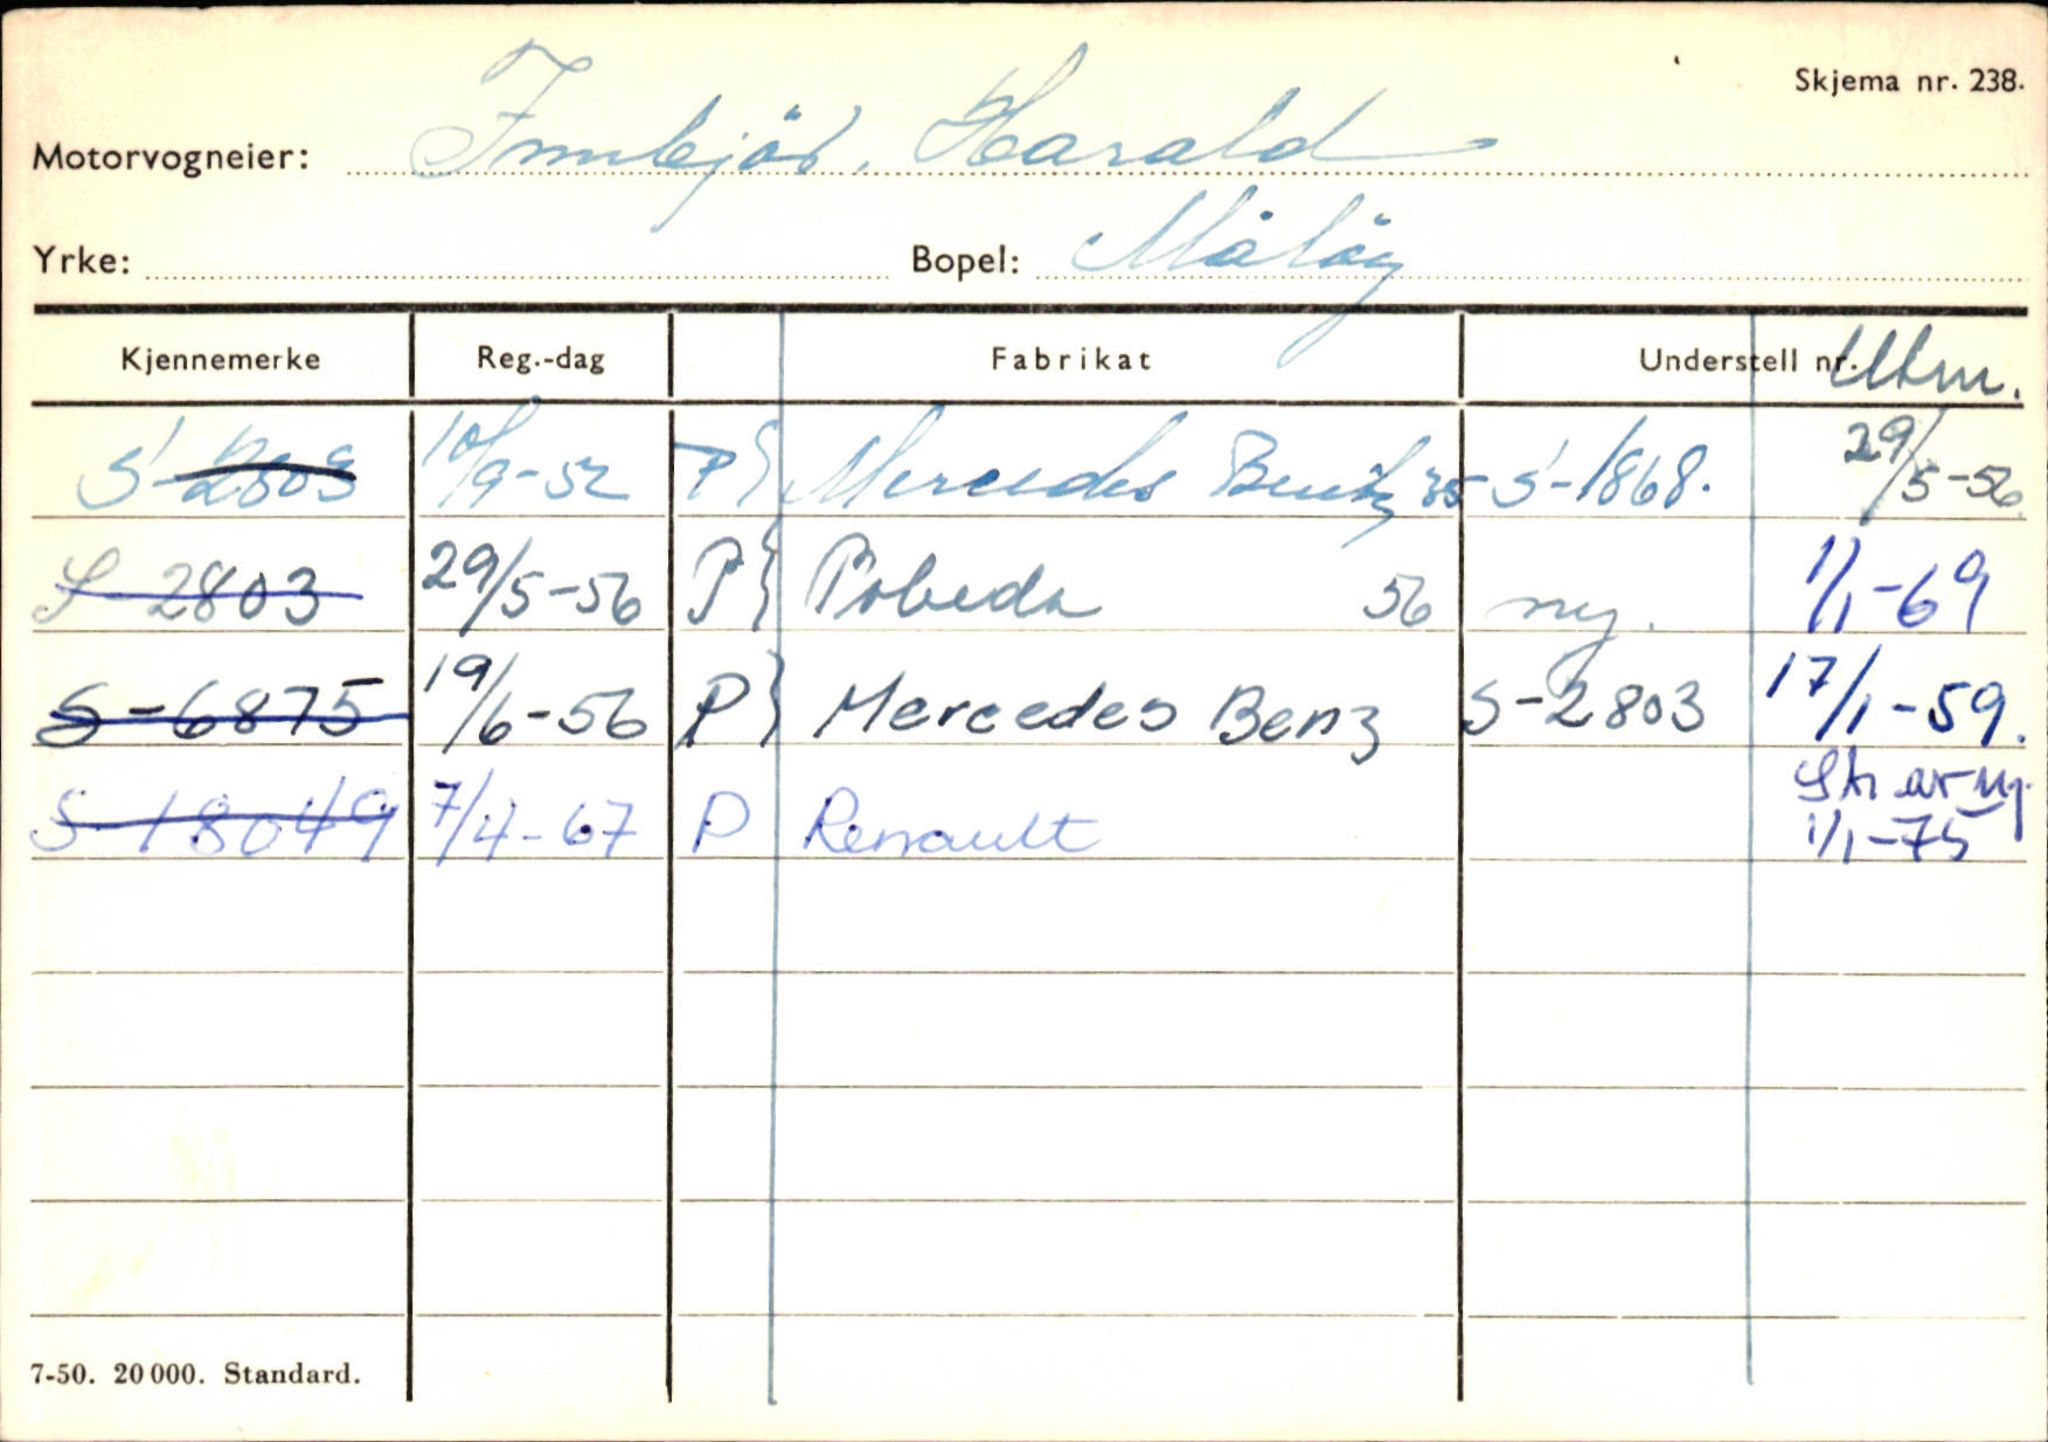 Skjema nr. 238.
Motorvogneier: Innbjör, Harald
Yrke: Bopel: Målöy
Kjennemerke Reg.-dag Fabrikat Understell nr. Utm.
S-2803 10/9-52 P Mercedes Bentz 35 S-1868. 29/5-56
S-2803 29/5-56 P Pobeda 56 ny. 1/1-69
S-6875 19/6-56 P Mercedes Benz S-2803 17/1-59.
S-18049 7/4-67 P Renault
1/1-75
7-50. 20 000. Standard.